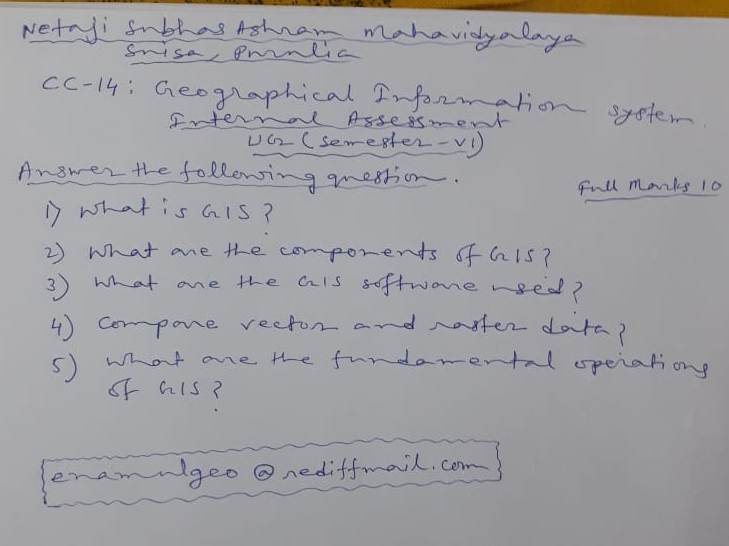 Netaji Subhas Ashram Mahavidyalaya
Suisa, Purulia
CC-14: Geographical Information System.
Internal Assessment
UG (Semester-VI)
Answer the following question.
Full Marks 10
1) What is GIS?
2) What are the components of GIS?
3) What are the GIS software used?
4) Compare vector and raster data?
5) What are the fundamental operations
of GIS?
enamulgeo@rediffmail.com